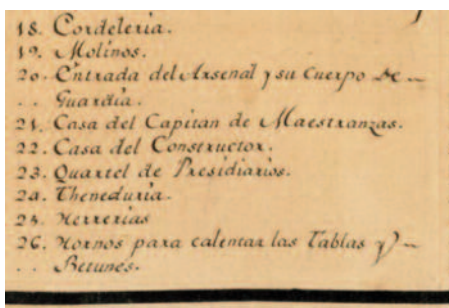 18. Cordeleria.
19. Molinos.
20. Entrada del Arsenal y su Cuerpo de ~
. . Guardia.
21. Casa del Capitan de Maestranzas.
22. Casa del Constructor.
23. Quartel de Presidiarios.
24. Theneduria.
25. Herrerias
26. Hornos para calentar las Tablas y ~
. . Betunes.